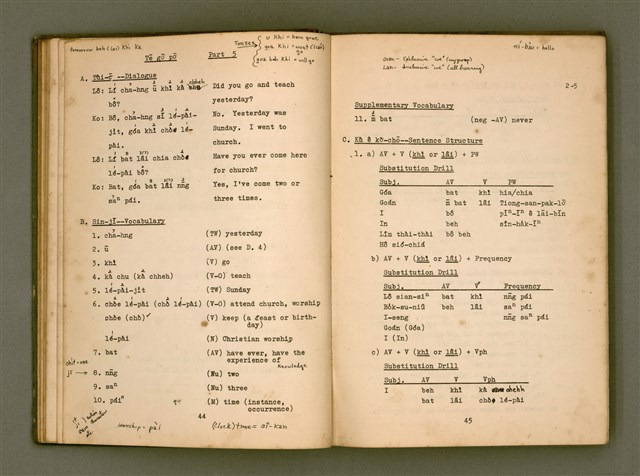 Tomorrow beh (lāi) khì ka
Tenses
ū khì = have gone
góa khì = went
góa beh khì = will go
Tē gō͘ pō͘ Part 5
A. Tùi-ōe --Dialogue
Lō͘: Lí cha-hng ū khì kà
bô?
Did you go and teach
yesterday?
Ko: Bô, cha-hng sī lé-pài-
jit, góa khì chòe lé-
pài.
No. Yesterday was
Sunday. I went to
church.
Lō͘: Lí bat lâi chia chòe
lé-pài bô?
Have you ever come here
for church?
Ko: Bat, góa bat lâi nn̄g
saⁿ pái.
Yes, I've come two or
three times.
B. Sin-jī--Vocabulary
1. cha-hng (TW) yesterday
2. ū (AV) (see D. 4)
3. khì (V) go
4. kà chu (kà chheh) (V-O) teach
5. lé-pài-jit (TW) Sunday
6. chòe lé-pài (chò lé-pài) (V-O) attend church, worship
chòe (chò) (V) keep (a feast or birth-
day)
lé-pài (N) Christian worship
7. bat (AV) have ever, have the
experience of
Knowledge
jī → 8. nn̄g (Nu) two
9. saⁿ (Nu) three
10. pái (M) time (instance,
occurrence)
worship = pài
(clock) time = sî-kan
44
ní-hó = hello
2-5
Supplementary Vocabulary
11. m̄ bat (neg -AV) never
C. Kù ê kò͘-chō--Sentence Structure
1. a) AV + V (khì or lâi) + PW
Substitution Drill
Subj. AV V PW
Góa bat khì hia/chia
Goán m̄ bat lâi Tiong-san-pak-lō͘
I bô pīⁿ-īⁿ & lāi-bīn
In beh sin-hák-īⁿ
Lîm thài-thài bô beh
Hō͘ sió-chiá
b) AV + V (khì or lâi) + Frequency
Substitution Drill
Subj. AV V Frequency
Lō͘ sian-siⁿ bat khì nn̄g pái
Bo̍k-su-niû beh lâi saⁿ pái
I-seng nn̄g saⁿ pái
Goán (Góa)
I (In)
c) AV + V (khì or lâi) + Vph
Substitution Drill
Subj. AV V Vph
I beh khì kà chheh
bat lâi chòe lé-pài
45